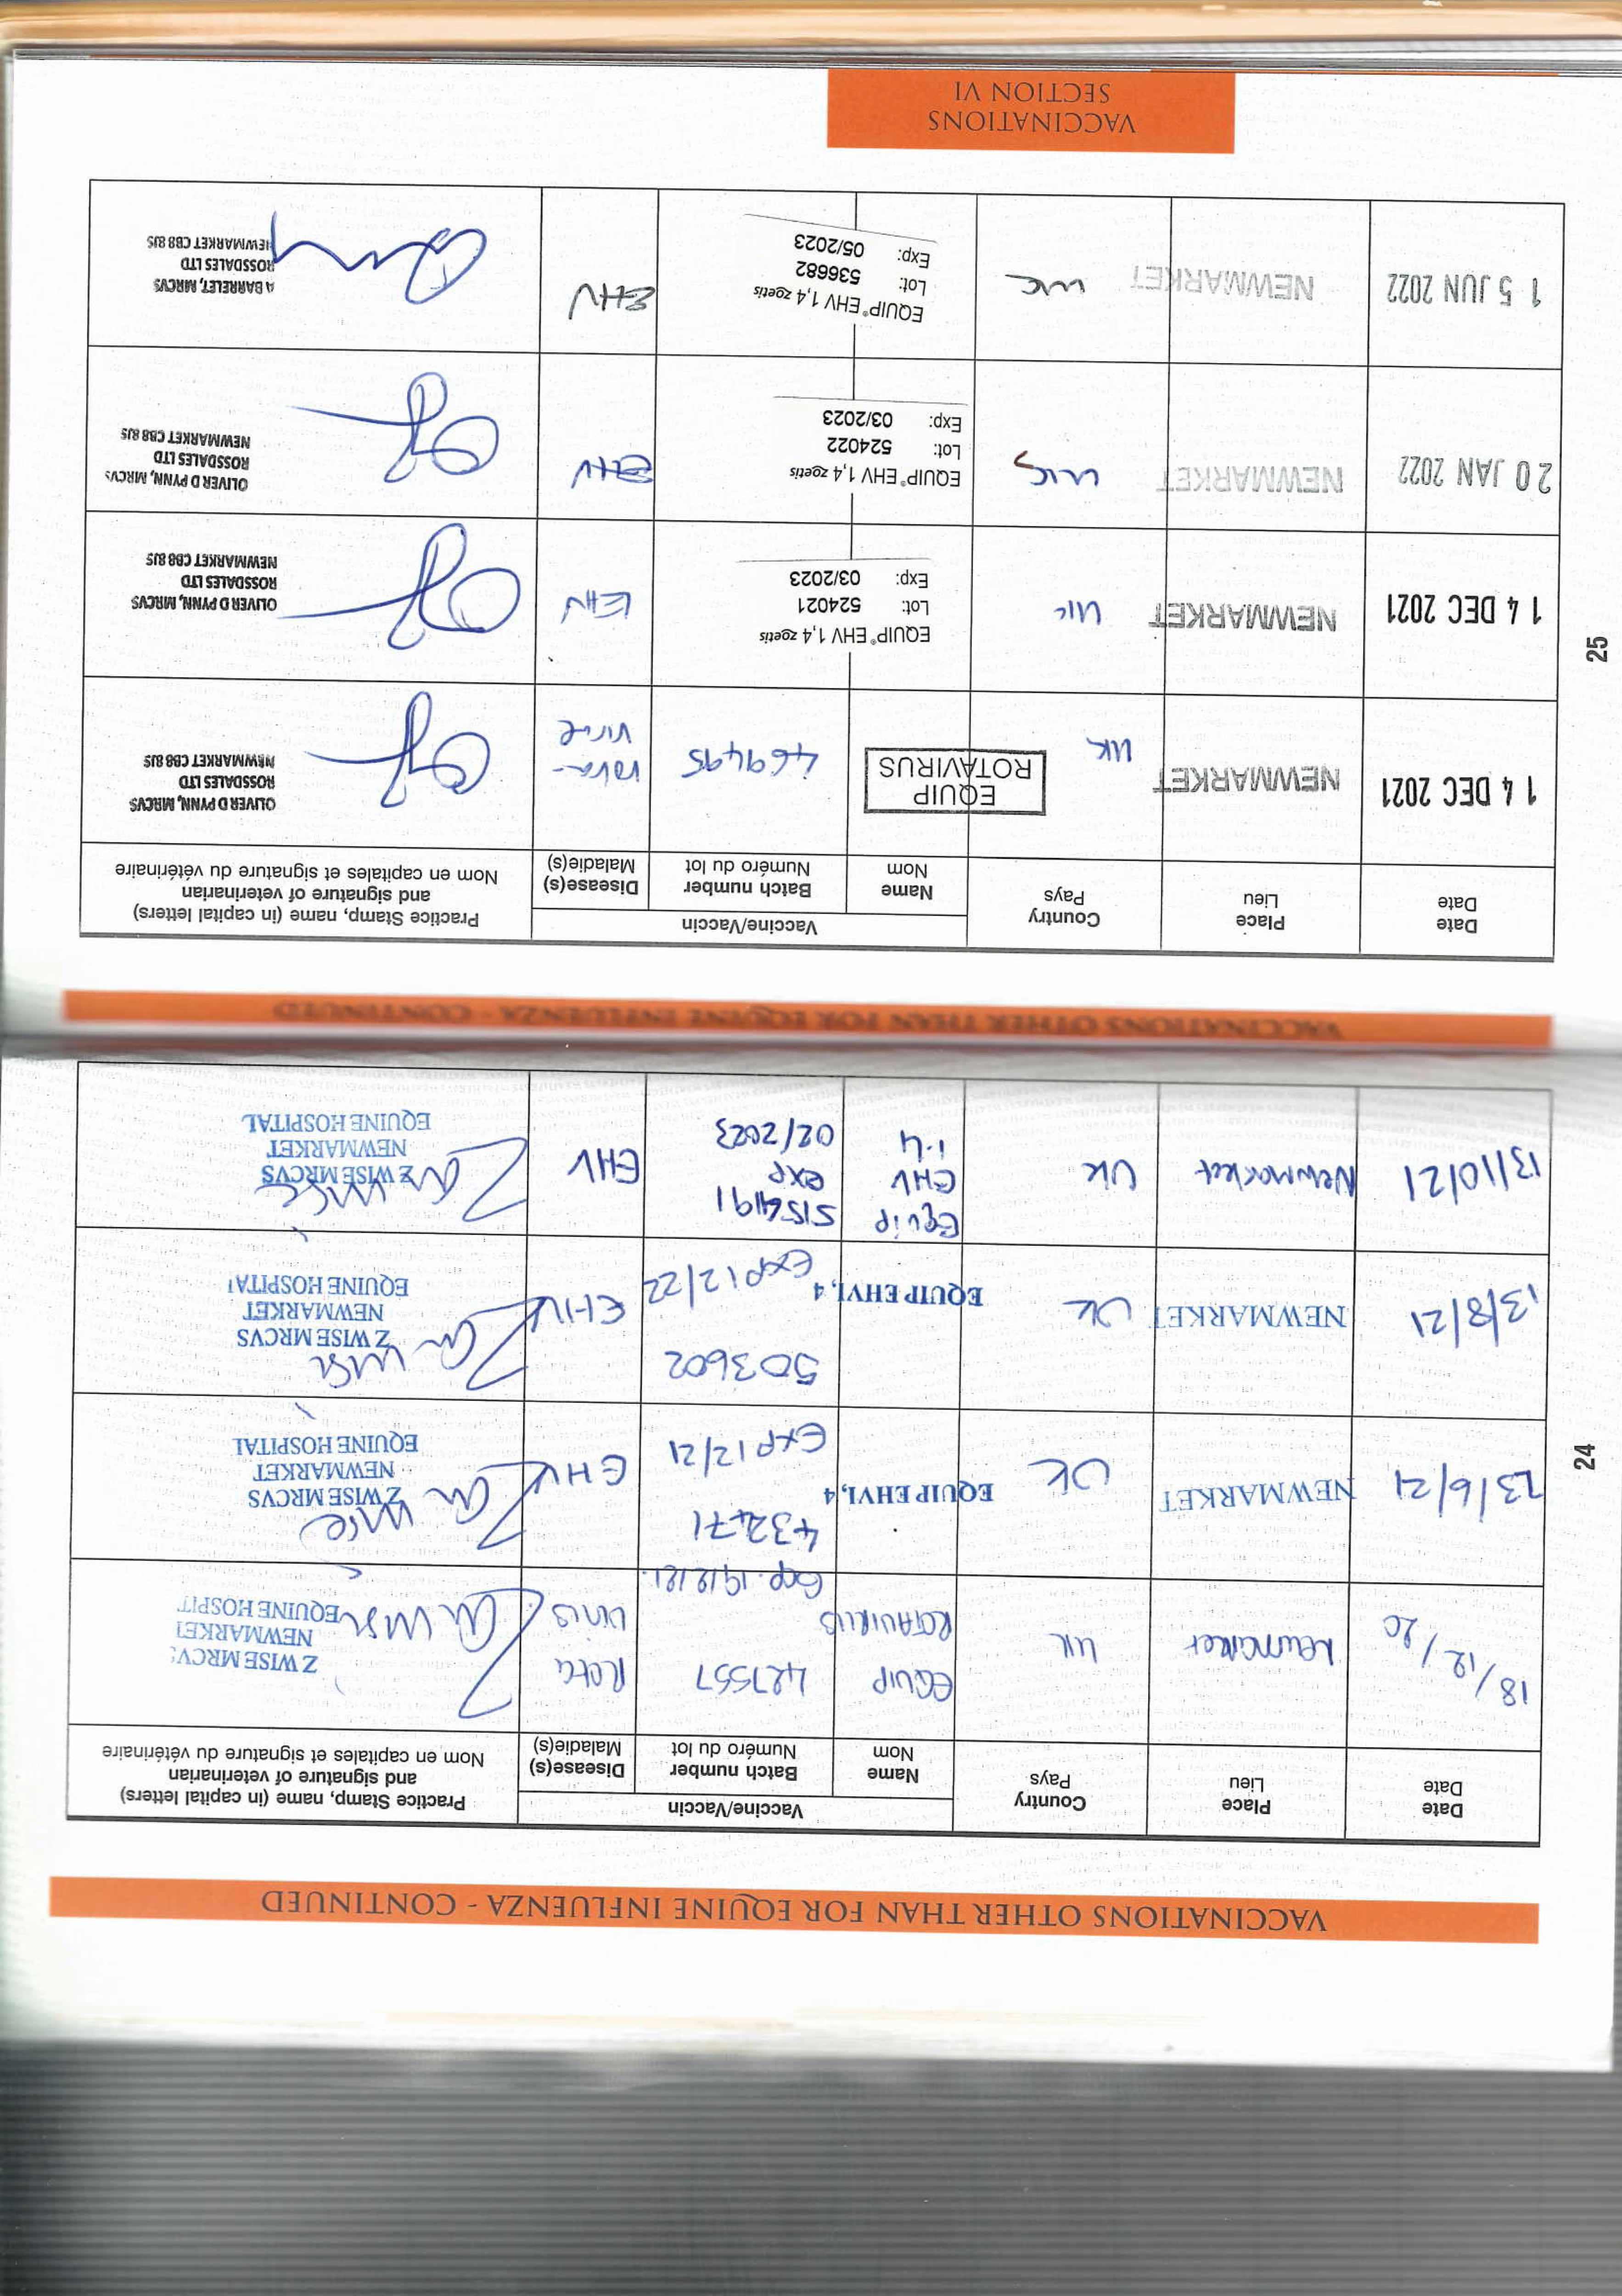 VACCINATIONS OTHER THAN FOR EQUINE INFLUENZA - CONTINUED
Date
Date
Place
Lieu
Country
Pays
Vaccine/Vaccin
Name
Nom
Batch number
Numéro du lot
Disease(s)
Maladie(s)
Practice Stamp, name (in capital letters)
and signature of veterinarian
Nom en capitales et signature du vétérinaire
18/12/20
Newmarket
UK
EQUIP
ROTAVIRUS
427557
Exp. 19/8/21.
Rota
Virus
Z WISE MRCV
NEWMARKET
EQUINE HOSPIT
23/6/21
NEWMARKET
UK
EQUIP EHV1,4
432471
EXP 12/21
EHV
Z WISE MRCVS
NEWMARKET
EQUINE HOSPITAL
13/8/21
NEWMARKET
UK
EQUIP EHV1,4
503602
EXP 12/22
EHV
Z WISE MRCVS
NEWMARKET
EQUINE HOSPITA
13/10/21
Newmarket
UK
Equip
EHV
1.4
exp
02/2023
EHV
Z WISE MRCVS
NEWMARKET
EQUINE HOSPITAL
24
VACCINATIONS OTHER THAN FOR EQUINE INFLUENZA - CONTINUED
Date
Date
Place
Lieu
Country
Pays
Vaccine/Vaccin
Name
Nom
Batch number
Numéro du lot
Disease(s)
Maladie(s)
Practice Stamp, name (in capital letters)
and signature of veterinarian
Nom en capitales et signature du vétérinaire
14 DEC 2021
NEWMARKET
UK
EQUIP
ROTAVIRUS
469495
rota-
virus
OLIVER D PYNN, MRCVS
ROSSDALES LTD
NEWMARKET CB8 8JS
14 DEC 2021
NEWMARKET
UK
EQUIP® EHV 1,4 zoetis
Lot: 524021
Exp: 03/2023
EHV
OLIVER D PYNN, MRCVS
ROSSDALES LTD
NEWMARKET CB8 8JS
20 JAN 2022
NEWMARKET
UK
EQUIP® EHV 1,4 zoetis
Lot: 524022
Exp: 03/2023
EHV
OLIVER D PYNN, MRCVS
ROSSDALES LTD
NEWMARKET CB8 8JS
15 JUN 2022
NEWMARKET
UK
EQUIP® EHV 1,4 zoetis
Lot: 536682
Exp: 05/2023
EHV
A BARRELET, MRCVS
ROSSDALES LTD
NEWMARKET CB8 8JS
25
VACCINATIONS
SECTION VI